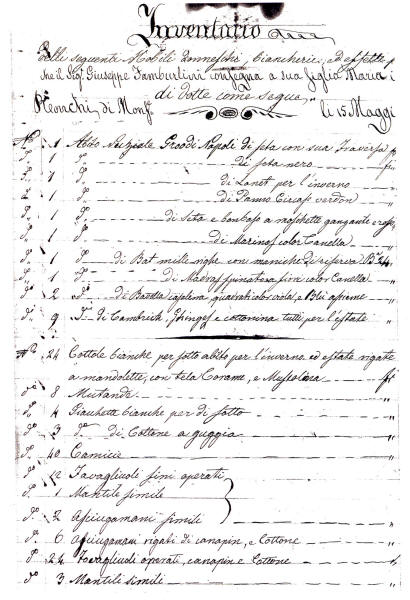 Inventario
delli seguente Mobili Donneschi, biancherie, ed effetti
che il Sigr Giuseppe Tamburlini consegna a sua figlia Maria
di dotte come segue,,
li 15 Maggi
No 1 Abito Nuziale Groodi Napoli di seta con sua Traversa
do 1 do di seta nero
do 1 do di Lanet per l'inverno
do 1 do di Panno Circass verdon
do 1 do di Seta e bonbaso a moschette gangante e rosse
do 1 do di Merinos color Canella
do 1 do di Bat mille righe con maniche di riserva
do 1 do di color Canella
do 2 do di quadrati color viola, e Blù assieme
do 9 do di Cambrich, Ghingef e cottonina tutti per l'estate
No 24 Cottole bianche per sotto abito per l'inverno ed estate rigate
a mandolette, con tela Coname, e Mussolina
do 8 Mutande
do 4 Giachette bianche per di sotto
do 3 do di Cottone a guggia
do 40 Camicie
do 12 Tavagliuole fini operati
do 1 Mantile simile
do 2 Asciugamani simili
do 6 Asciugamani rigati di canapin, e Cottone
do 24 Tovagliuoli operati, canapin e Cottone
do 3 Mantili simili